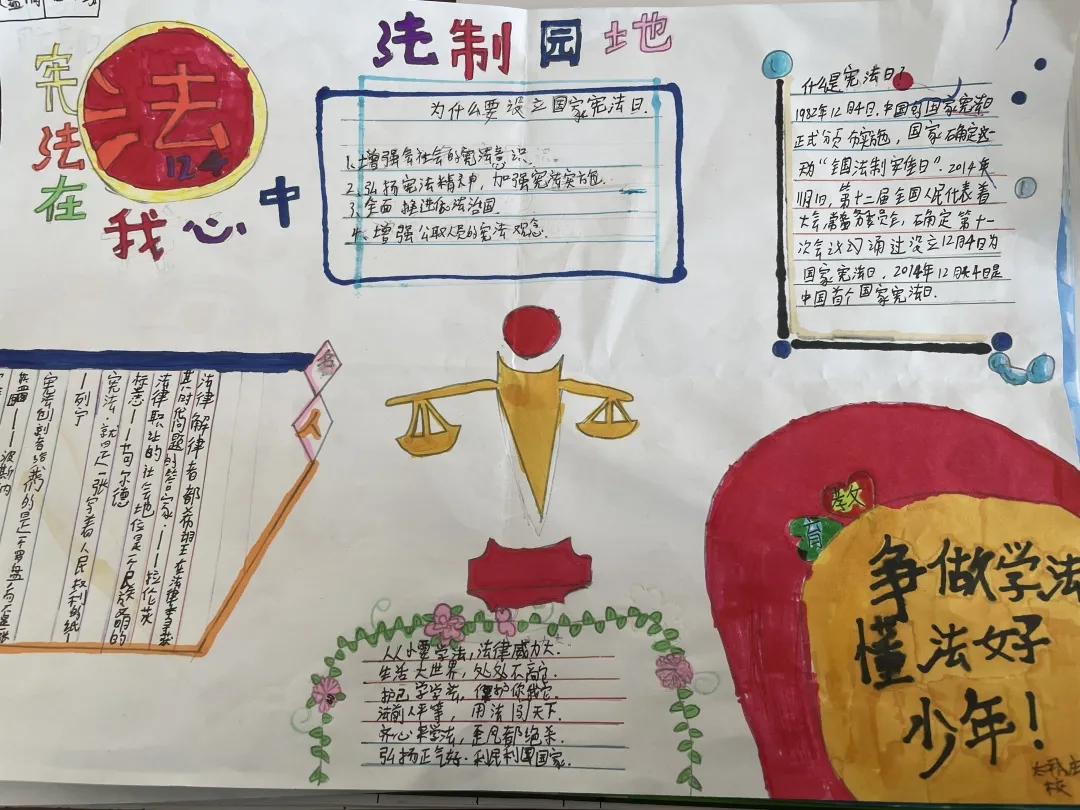 法制园地
宪法在
法
12.4
我心中
为什么要设立国家宪法日.
1.增强全社会的宪法意识.
2.弘扬宪法精神,加强宪法实施.
3.全面推进依法治国.
4.增强公职人员的宪法观念.
什么是宪法日?
1982年12月4日,中国 国家宪法
正式颁布实施,国家确定这一
动"全国法制宣传日".2014年
11月1日,第十二届全国人民代表着
大会常务委员会,确定第十一
次会议 通过设立12月4日为
国家宪法日,2014年12月4日是
中国首个国家宪法日.
名人
法律解律者都希望在法律
其时代问题的答案.——拉伦茨
法律职业的社会地位是一个民族文明的
标志——卡尔德
宪法,就是一张写着人民权利的纸
——列宁
宪法创制者给我们的是一个罗盘,而不是张
蓝图——波斯纳
从小要学法,法律威力大.
生活大世界,处处不离它.
护己学学法,保护你我它.
法前人平等,用法 天下.
齐心来学法,歪风都绝杀.
弘扬正气好.利民利国国家.
教育
争做学法
懂法好
少年!